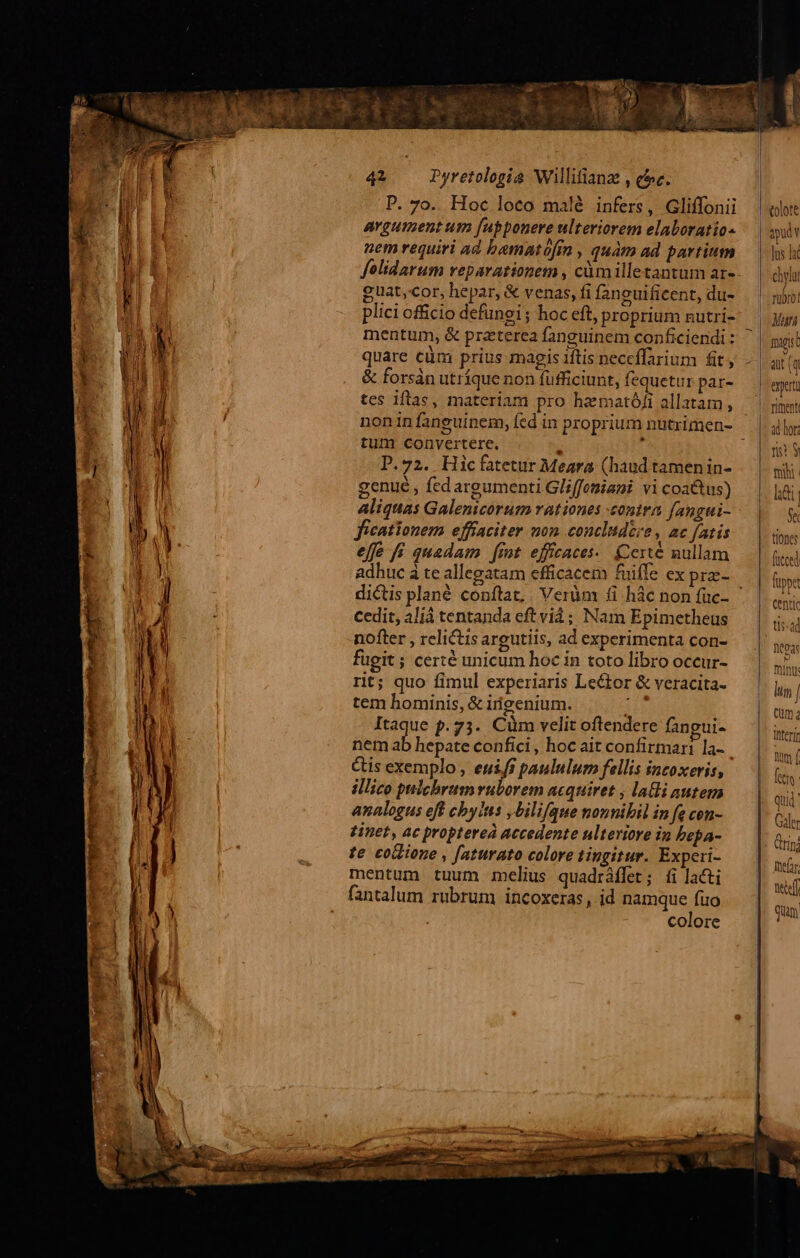 42 Pyretologia Willifianæ , &c.
P. 70. Hoc loco malè inſers, Gliſſonii
argumentum ſupponere ulteriorem elaboratio-
nem requiri ad hæmatôſin , quàm ad partium
ſolidarum reparationem , cùm ille tantum ar-
guat, cor, hepar, & venas, ſi ſanguificent, du-
plici officio defungi ; hoc eſt, proprium nutri-
mentum, & præterea ſanguinem conficiendi :
quare cùm prius magis iſtis neceſſarium ſit ,
& forsàn utríque non ſufficiunt, ſequetur par-
tes iſtas, materiam pro hæmatôſi allatam ,
non in ſanguinem, ſed in proprium nutrimen-
tum convertere.
P. 72. Hic fatetur Meara (haud tamen in-
genuè , ſed argumenti Gliſſoniani vi coactus)
aliquas Galenicorum rationes contra ſangui-
ficationem efficaciter non concludere , ac ſatis
eſſe ſi quædam ſint efficaces. Certè nullam
adhuc à te allegatam efficacem fuiſſe ex præ-
dictis planè conſtat. Verùm ſi hâc non ſuc-
cedit, aliâ tentanda eſt viâ ; Nam Epimetheus
noſter , relictis argutiis, ad experimenta con-
fugit ; certè unicum hoc in toto libro occur-
rit; quo ſimul experiaris Lector & veracita-
tem hominis, & ingenium.
Itaque p. 73. Cùm velit oſtendere ſangui-
nem ab hepate confici , hoc ait confirmari la-
ctis exemplo , cui ſi paululum fellis incoxeris,
illico pulchrum ruborem acquiret , lacti autem
analogus eſt chylus , biliſque nonnihil in ſe con-
tinet, ac proptereà accedente ulteriore in hepa-
te coctione , ſaturato colore tingitur. Experi-
mentum tuum melius quadràſſet ; ſi lacti
ſantalum rubrum incoxeras , id namque ſuo
colore